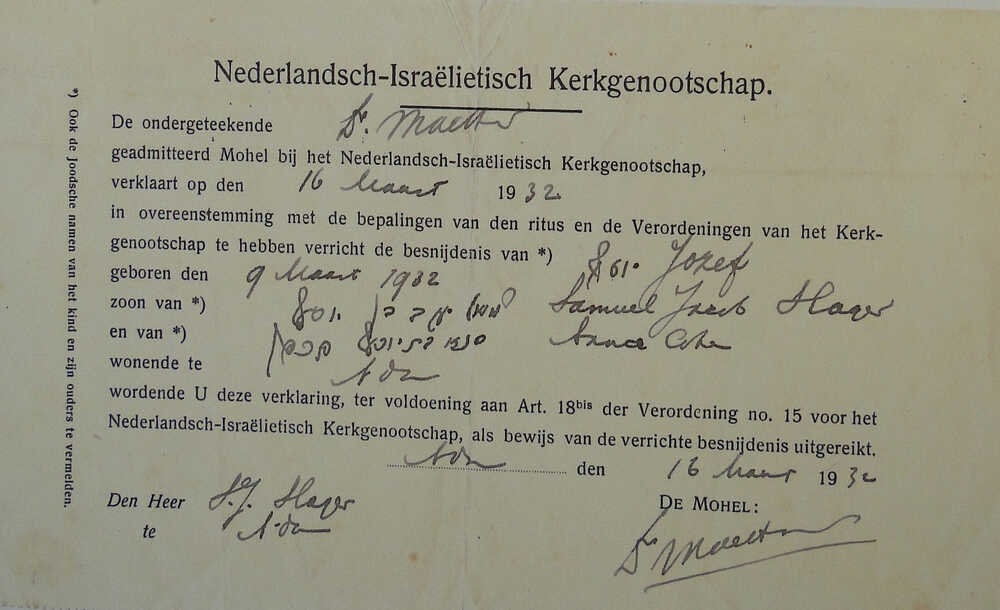 Nederlandsch-Israëlietisch Kerkgenootschap.
De ondergeteekende Dr.
geadmitteerd Mohel bij het Nederlandsch-Israëlietisch Kerkgenootschap,
verklaart op den 16 Maart 1932
in overeenstemming met de bepalingen van den ritus en de Verordeningen van het Kerk-
genootschap te hebben verricht de besnijdenis van *) Jozef
geboren den 9 Maart 1932
zoon van *) Samuel Jacob Slager
en van *) Anna
wonende te A'dam
wordende U deze verklaring, ter voldoening aan Art. 18bis der Verordening no. 15 voor het
Nederlandsch-Israëlietisch Kerkgenootschap, als bewijs van de verrichte besnijdenis uitgereikt.
A'dam den 16 Maart 1932
Den Heer S.J. Slager
DE MOHEL:
te A'dam
Dr.
*) Ook de Joodsche namen van het kind en zijn ouders te vermelden.